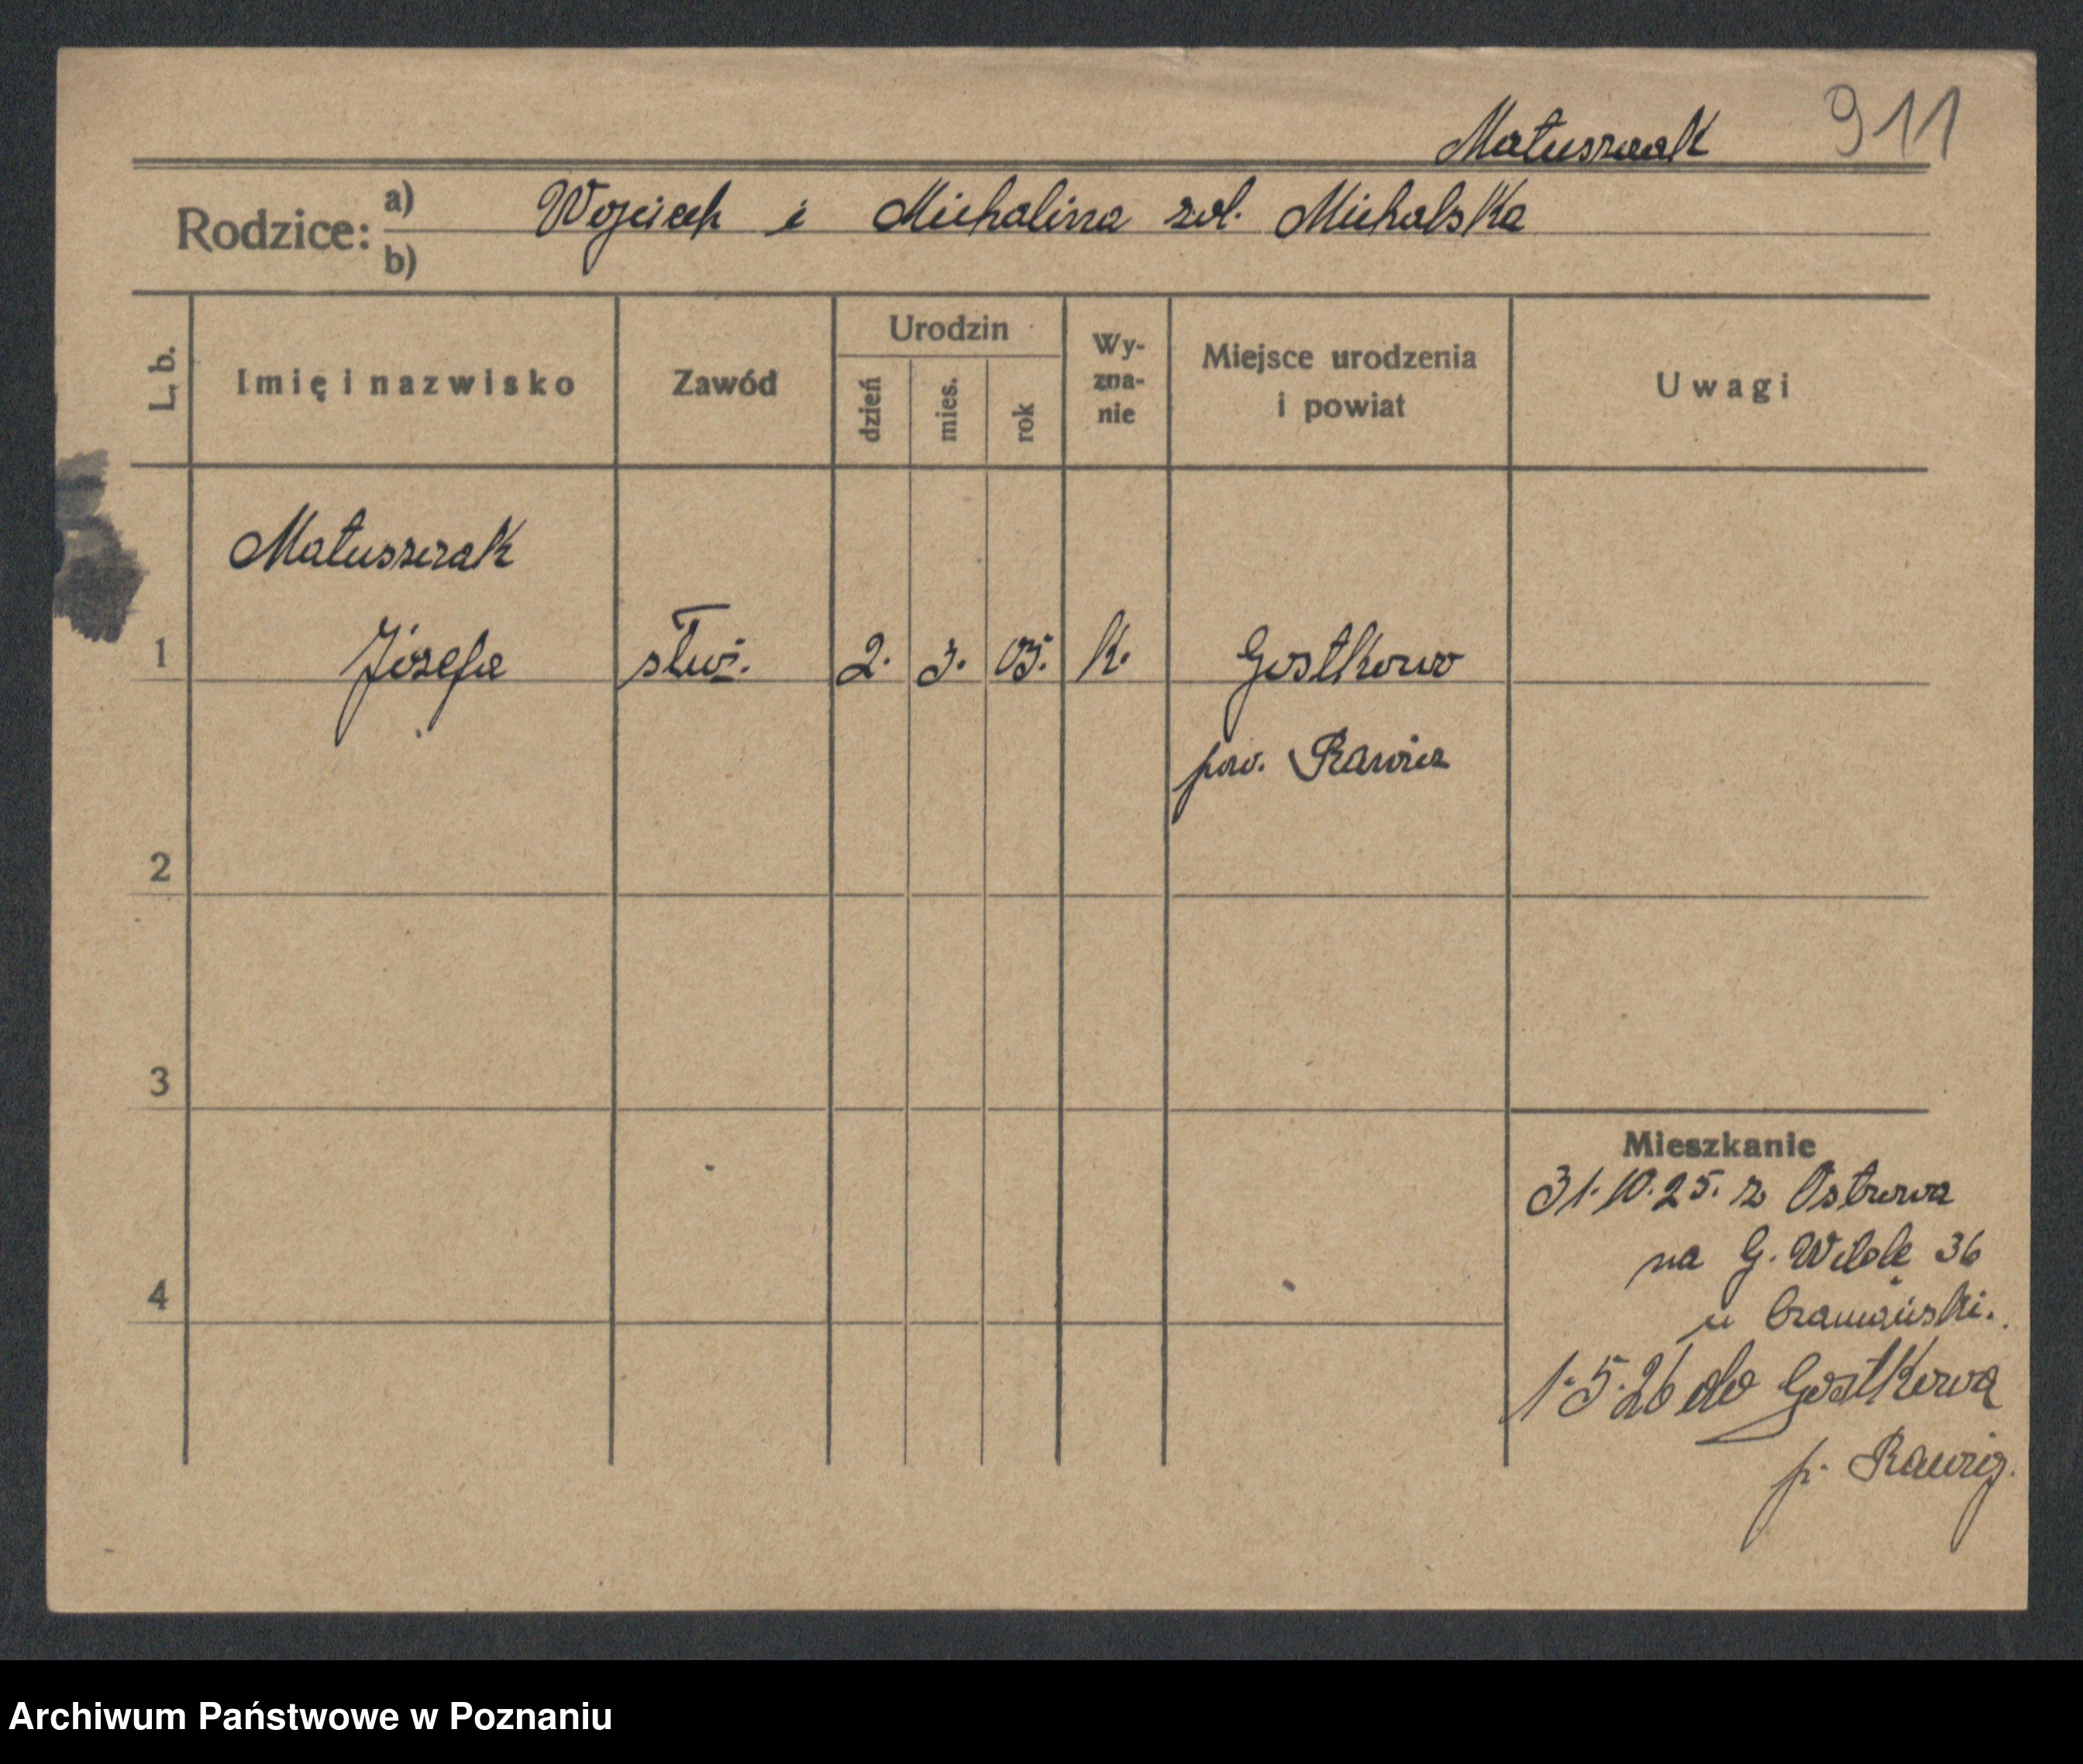 Matuszczak 911
Rodzice: a) Wojciech i Michalina zd. Michalska
b)
L. b. Imię i nazwisko Zawód Urodzin dzień mies. rok Wy- zna- nie Miejsce urodzenia i powiat Uwagi
Matuszczak
1 Józefa służ. 2. 3. 05. k. Gostkowo
pow. Rawicz
2
3
Mieszkanie
31.10.25. z Ostrowa
na G. Wilde 36
4
u
1.5.26 do Gostkowa
p. Rawicz.
Archiwum Państwowe w Poznaniu